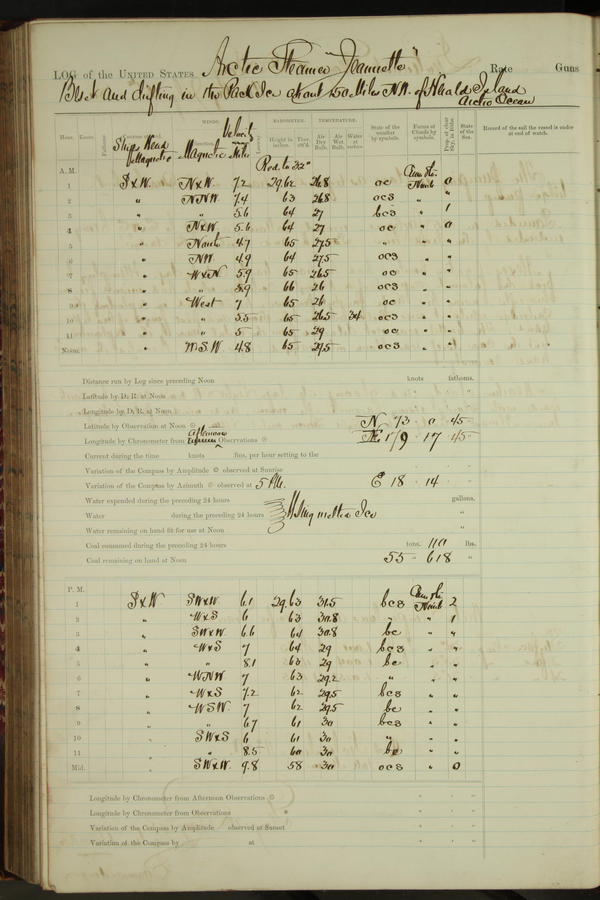 LOG of the UNITED STATES Arctic Steamer "Jeannette" Rate Guns
Beset and drifting in the Pack Ice about 150 Miles N.W. of Herald Island
Arctic Ocean
WINDS. BAROMETER. TEMPERATURE.
Hour. Knots. Fathoms. Ships Head Magnetic Magnetic Velocity Miles Height in inches. Ther. att'd. Air Dry Bulb. Air Wet Bulb. Water at surface. State of the weather by symbols. Forms of Clouds by symbols. Prop. of clear Sky, in 10ths. State of the Sea. Record of the sail the vessel is under at end of watch.
A.M. Red. to 32°
1 S & W. N & W. 7.2 29.62 26.8 oc 0
2 " N N W. 7.4 63 26.8 ocs " "
3 " " 5.6 64 27 bcs " 1
4 " N & W. 5.6 64 27 oc " 0
5 " North 4.7 65 27.5 " " "
6 " N W. 4.9 64 27.5 ocs " "
7 " W & N. 5.9 65 26.5 oc " "
8 " " 5.9 66 26 ocs " "
9 " West 7 65 26 oc " "
10 " " 5.5 65 26.5 34 ocs " "
11 " " 5 65 29 oc " "
Noon. " W S. W. 4.8 65 29.5 ocs " "
Distance run by Log since preceding Noon knots fathoms.
Latitude by D. R. at Noon
Longitude by D. R. at Noon
Latitude by Observation at Noon N 73 0 45
Longitude by Chronometer from afternoon Observations 179 17 45
Current during the time knots fms, per hour setting to the
Variation of the Compass by Amplitude observed at Sunrise
Variation of the Compass by Azimuth observed at 5 P.M. E 18 14
Water expended during the preceding 24 hours gallons.
Water during the preceding 24 hours Using melted Ice "
Water remaining on hand fit for use at Noon "
Coal consumed during the preceding 24 hours tons. 110 lbs.
Coal remaining on hand at Noon 55 - 618 "
P. M.
1 S & W S W & W. 6.1 29.63 31.5 bcs 2
2 " W & S 6 63 30.8 " " 1
3 " S W & W. 6.6 64 30.8 bc " "
4 " W & S 7 64 29 bcs " "
5 " " 8.1 63 29 bc " "
6 " W N W. 7 63 29.2 " " "
7 " W & S 7.2 62 29.5 bcs " "
8 " W S W. 7 62 29.5 bc " "
9 " " 6.7 61 30 bcs " "
10 " S W & S 6 61 30 " " "
11 " " 8.5 60 30 bc " "
Mid. " S W & W. 9.8 58 30 ocs " 0
Longitude by Chronometer from Afternoon Observations
Longitude by Chronometer from Observations
Variation of the Compass by Amplitude observed at Sunset
Variation of the Compass by at